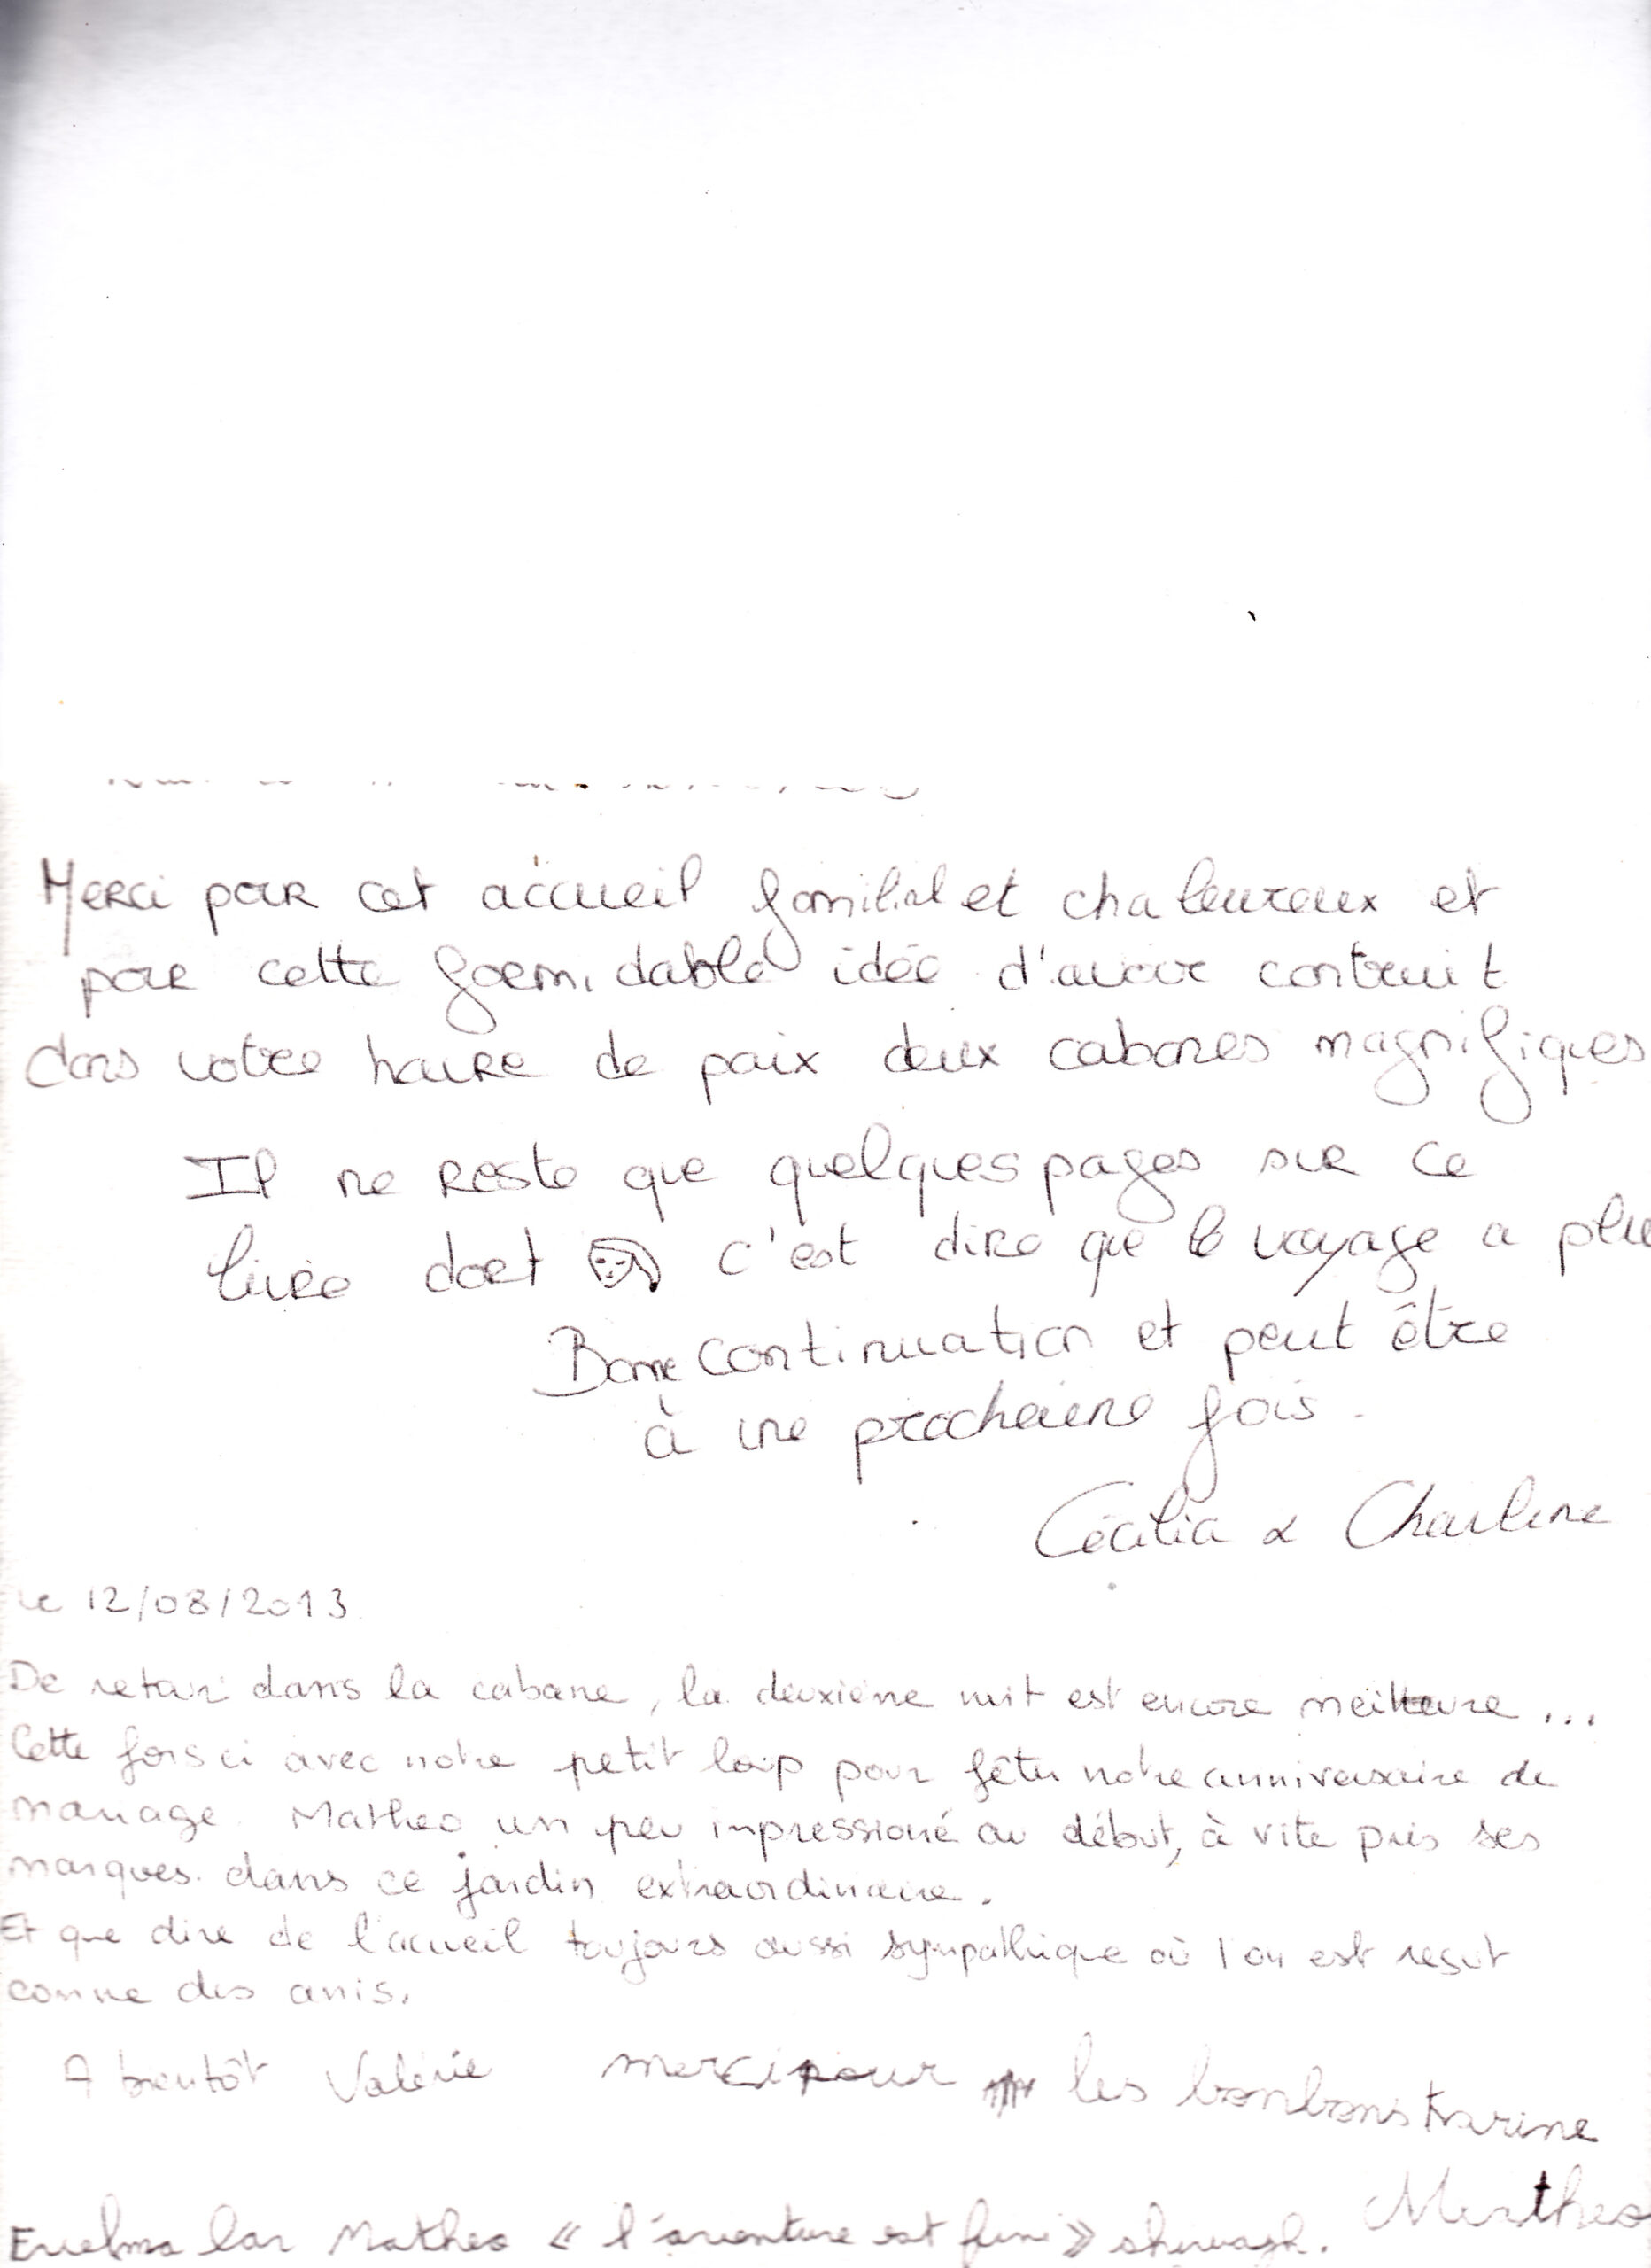 Merci pour cet accueil familial et chaleureux et
pour cette formidable idée d'avoir contruit
dans votre havre de paix deux cabanes magnifiques
Il ne reste que quelques pages sur ce
livre dort c'est dire que le voyage a plu
Bonne continuation et peut être
à une prochaine fois.
Cécilia & Charlene
Le 12/08/2013
De retour dans la cabane, la deuxième nuit est encore meilleure...
Cette fois ci avec notre petit loup pour fêter notre anniversaire de
mariage. Matheo un peu impressioné au début, à vite pris ses
marques dans ce jardin extraordinaire.
Et que dire de l'accueil toujours aussi sympathique où l'on est reçut
comme des amis.
A bientôt Valérie merci pour les bonbons Karine
Matheo
Matheo « l'aventure est fini »